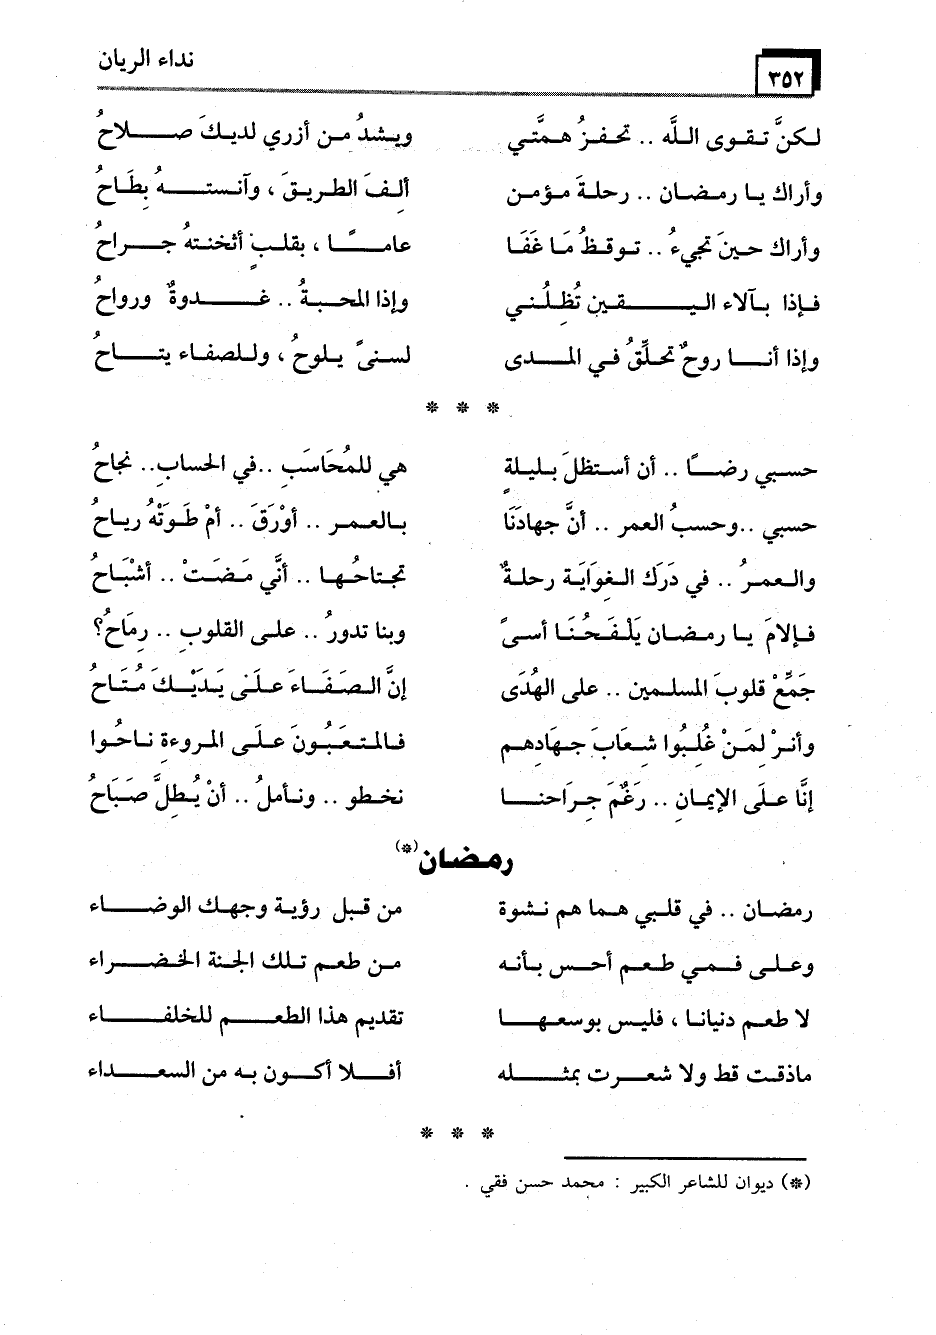 نداء الريان
٣٥٢
لكنَّ تقوى اللَّه .. تحفزُ همتَّي ويشدُ من أزري لديك صلاحُ
وأراك يا رمضان .. رحلةَ مؤمنٍ ألفَ الطريقَ ، وآنسته بطَاحُ
وأراك حينَ تجيءُ .. توقظُ مَا غَفَا عامًا ، بقلبٍ أثخنتهُ جراحُ
فإذا بآلاء اليقين تُظِلُني وإذا المحبةُ .. غدوةٌ ورواحُ
وإذا أنا روحٌ تحلِّقُ في المدى لسنىً يلوحُ ، وللصفاء يتاحُ
* * *
حسبي رضًا .. أن أستظلَ بليلةٍ هي للمُحَاسَبِ ..في الحسابِ.. نجاحُ
حسبي ..وحسبُ العمر .. أنَّ جهادَنَا بالعمر .. أوْرَقَ .. أمْ طَوتْهُ رياحُ
والعمرُ .. في دَرَك الغوَايَةِ رحلةٌ تجتاحُها .. أنَّي مَضَتْ .. أشْبَاحُ
فإلامَ يا رمضان يَلْفَحُنَا أسىً وبنا تدورُ .. على القلوبِ .. رمَاحُ؟
جَمِّعْ قلوبَ المسلمين .. على الهُدَى إنَّ الصَفَاءَ عَلَى يَدَيْكَ مُتَاحُ
وأنرْ لمَنْ غُلِبُوا شعَابَ جهَادِهم فالمتعَبُونَ علَى المروءةِ ناحُوا
إنَّا علَى الإيمانِ .. رَغْمَ جِرَاحنا نخطو .. ونأملُ .. أنْ يُطِلَّ صَبَاحُ
رمضان(*)
رمضان .. في قلبي هما هم نشوة من قبل رؤية وجهك الوضاء
وعلى فمي طعم أحس بأنه من طعم تلك الجنة الخضراء
لا طعم دنيانا ، فليس بوسعها تقديم هذا الطعم للخلفاء
ماذقت قط ولا شعرت بمثله أفلا أكون به من السعداء
* * *
(*) ديوان للشاعر الكبير : محمد حسن فقي .